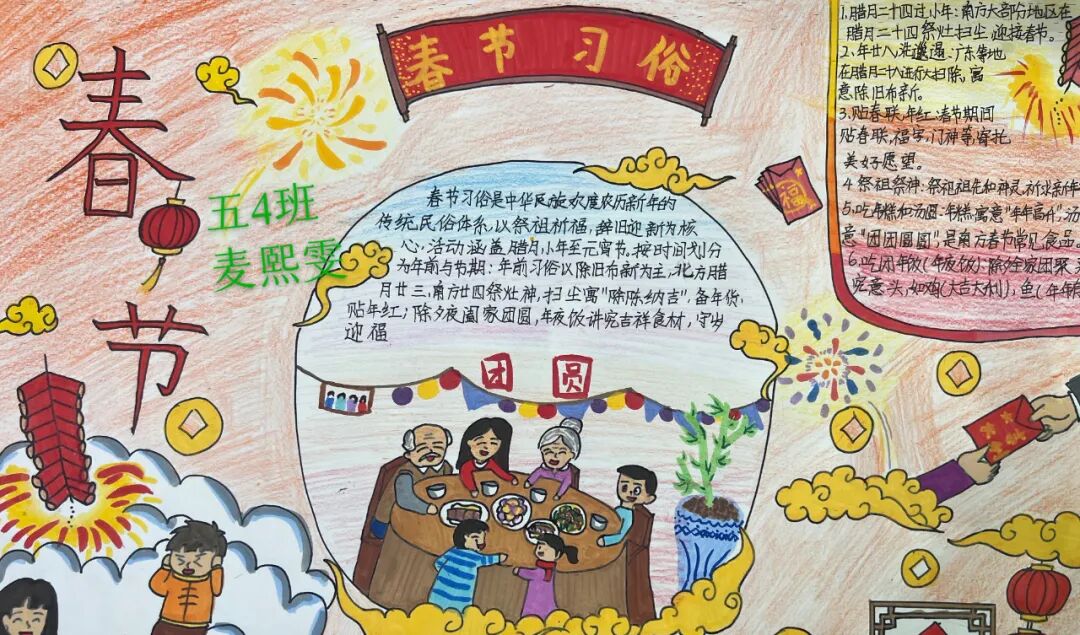 春节
春节习俗
五4班
麦熙雯
春节习俗是中华民族欢度农历新年的
传统民俗体系,以祭祖祈福、辞旧迎新为核
心,活动涵盖腊月小年至元宵节。按时间划分
为年前与节期:年前习俗以除旧布新为主,北方腊
月廿三、南方廿四祭灶神,扫尘寓"除陈纳吉",备年货、
贴年红;除夕夜阖家团圆,年夜饭讲究吉祥食材,守岁
迎福
团圆
1.腊月二十四过小年:南方大部分地区在
腊月二十四祭灶扫尘,迎接春节。
2.年廿八,洗邋遢:广东等地
在腊月二十八进行大扫除,寓
意除旧布新。
3.贴春联、年红:春节期间
贴春联,福字,门神等,寄托
美好愿望。
4.祭祖祭神:祭祖祖先和神灵,祈求新年
5.吃年糕和汤圆:年糕寓意"年年高升",汤
意"团团圆圆",是南方春节常见食品
6.吃团年饭(年夜饭):除夕全家团聚,
究意头,如鸡(大吉大利),鱼(年年
福